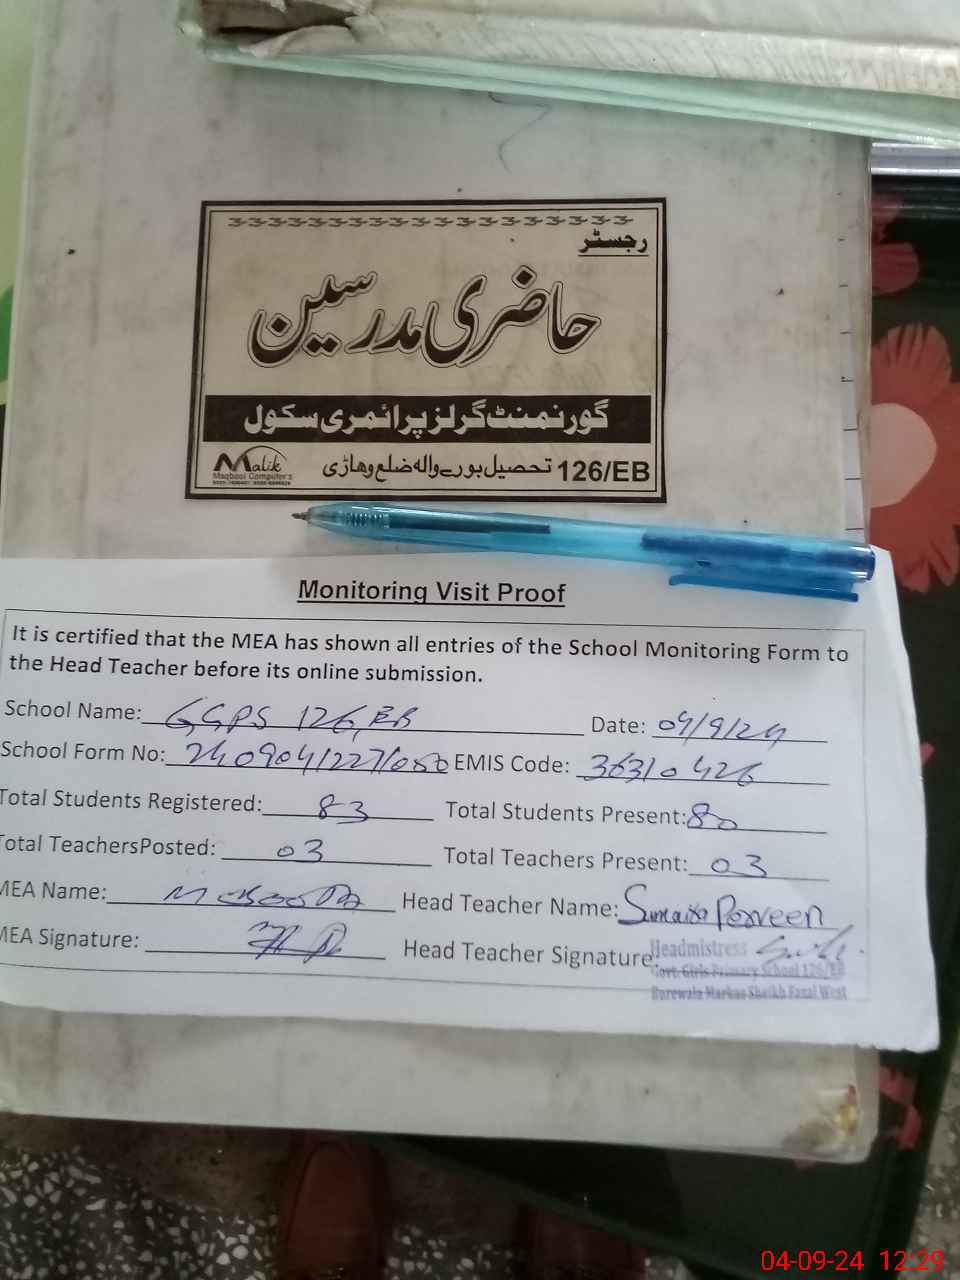 رجسٹر
حاضری مدرسین
گورنمنٹ گرلز پرائمری سکول
126/EB تحصیل بورے والہ ضلع وہاڑی
Malik
Maqbool Computer's
Monitoring Visit Proof
It is certified that the MEA has shown all entries of the School Monitoring Form to
the Head Teacher before its online submission.
School Name: GGPS 126, EB Date: 04/9/24
School Form No: EMIS Code: 36310426
Total Students Registered: 83 Total Students Present: 80
Total TeachersPosted: 03 Total Teachers Present: 03
MEA Name: Head Teacher Name: Sumaira Perveen
MEA Signature: Head Teacher Signature:
Headmistress
Govt. Girls Primary School 126/EB
Burewala Markaz Sheikh Fazal West
04-09-24 12:29